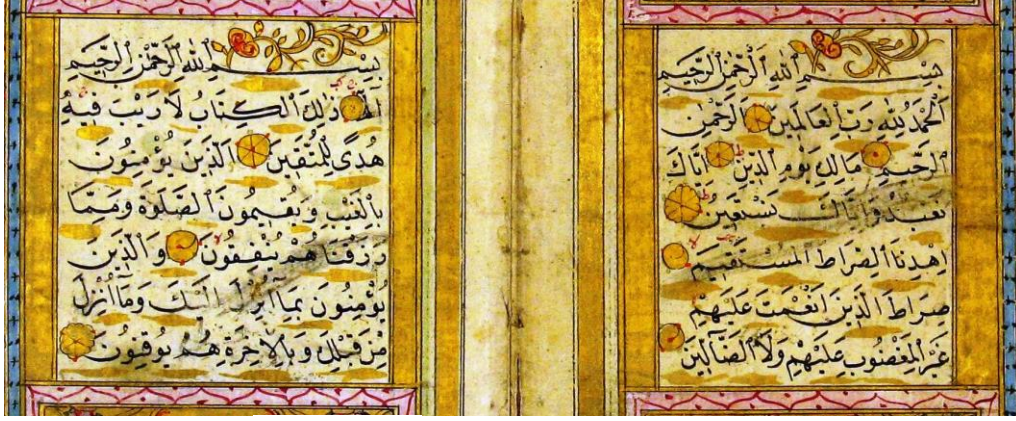 بِسْمِ ٱللهِ ٱلرَّحْمٰنِ ٱلرَّحِيمِ
اَلْحَمْدُ لِلّٰهِ رَبِّ ٱلْعَالَمِينَ ٱلرَّحْمٰنِ
ٱلرَّحِيمِ مَالِكِ يَوْمِ ٱلدِّينِ اِيَّاكَ
نَعْبُدُ وَاِيَّاكَ نَسْتَعِينُ
اِهْدِنَا ٱلصِّرَاطَ ٱلْمُسْتَقِيمَ
صِرَاطَ ٱلَّذِينَ اَنْعَمْتَ عَلَيْهِمْ
غَيْرِ ٱلْمَغْضُوبِ عَلَيْهِمْ وَلَا ٱلضَّالِّينَ
بِسْمِ ٱللهِ ٱلرَّحْمٰنِ ٱلرَّحِيمِ
الٓمٓ ذٰلِكَ ٱلْكِتَابُ لَا رَيْبَ فِيهِ
هُدًى لِلْمُتَّقِينَ ٱلَّذِينَ يُؤْمِنُونَ
بِٱلْغَيْبِ وَيُقِيمُونَ ٱلصَّلٰوةَ وَمِمَّا
رَزَقْنَاهُمْ يُنْفِقُونَ وَٱلَّذِينَ
يُؤْمِنُونَ بِمَٓا اُنْزِلَ اِلَيْكَ وَمَٓا اُنْزِلَ
مِنْ قَبْلِكَ وَبِٱلْاٰخِرَةِ هُمْ يُوقِنُونَ